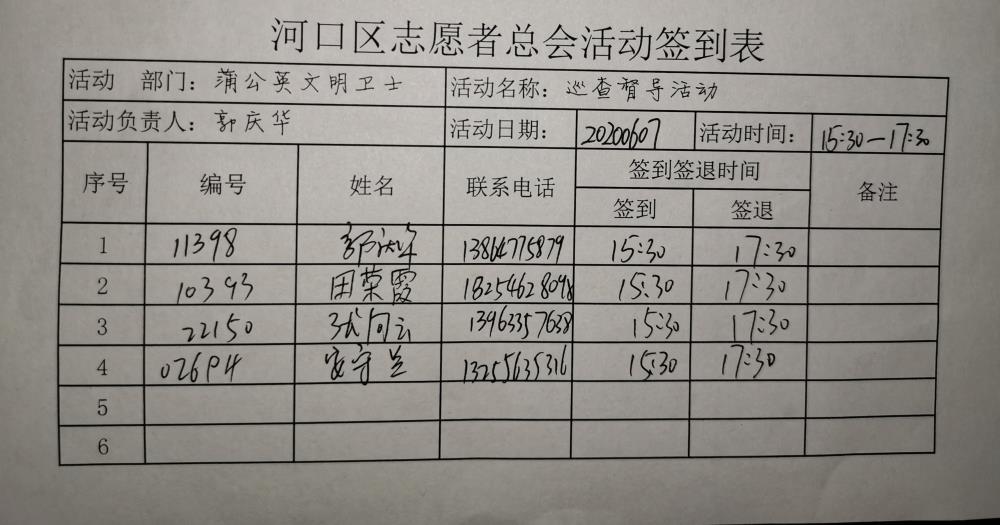 河口区志愿者总会活动签到表
活动 部门：蒲公英文明卫士 活动名称：巡查督导活动
活动负责人：郭庆华 活动日期： 20200607 活动时间： 15:30—17:30
序号 编号 姓名 联系电话 签到签退时间 备注
签到 签退
1 11398 郭庆华 13864775879 15:30 17:30
2 10393 田荣霞 18254628098 15:30 17:30
3 22150 向云 13963357638 15:30 17:30
4 安守兰 13255635316 15:30 17:30
5
6